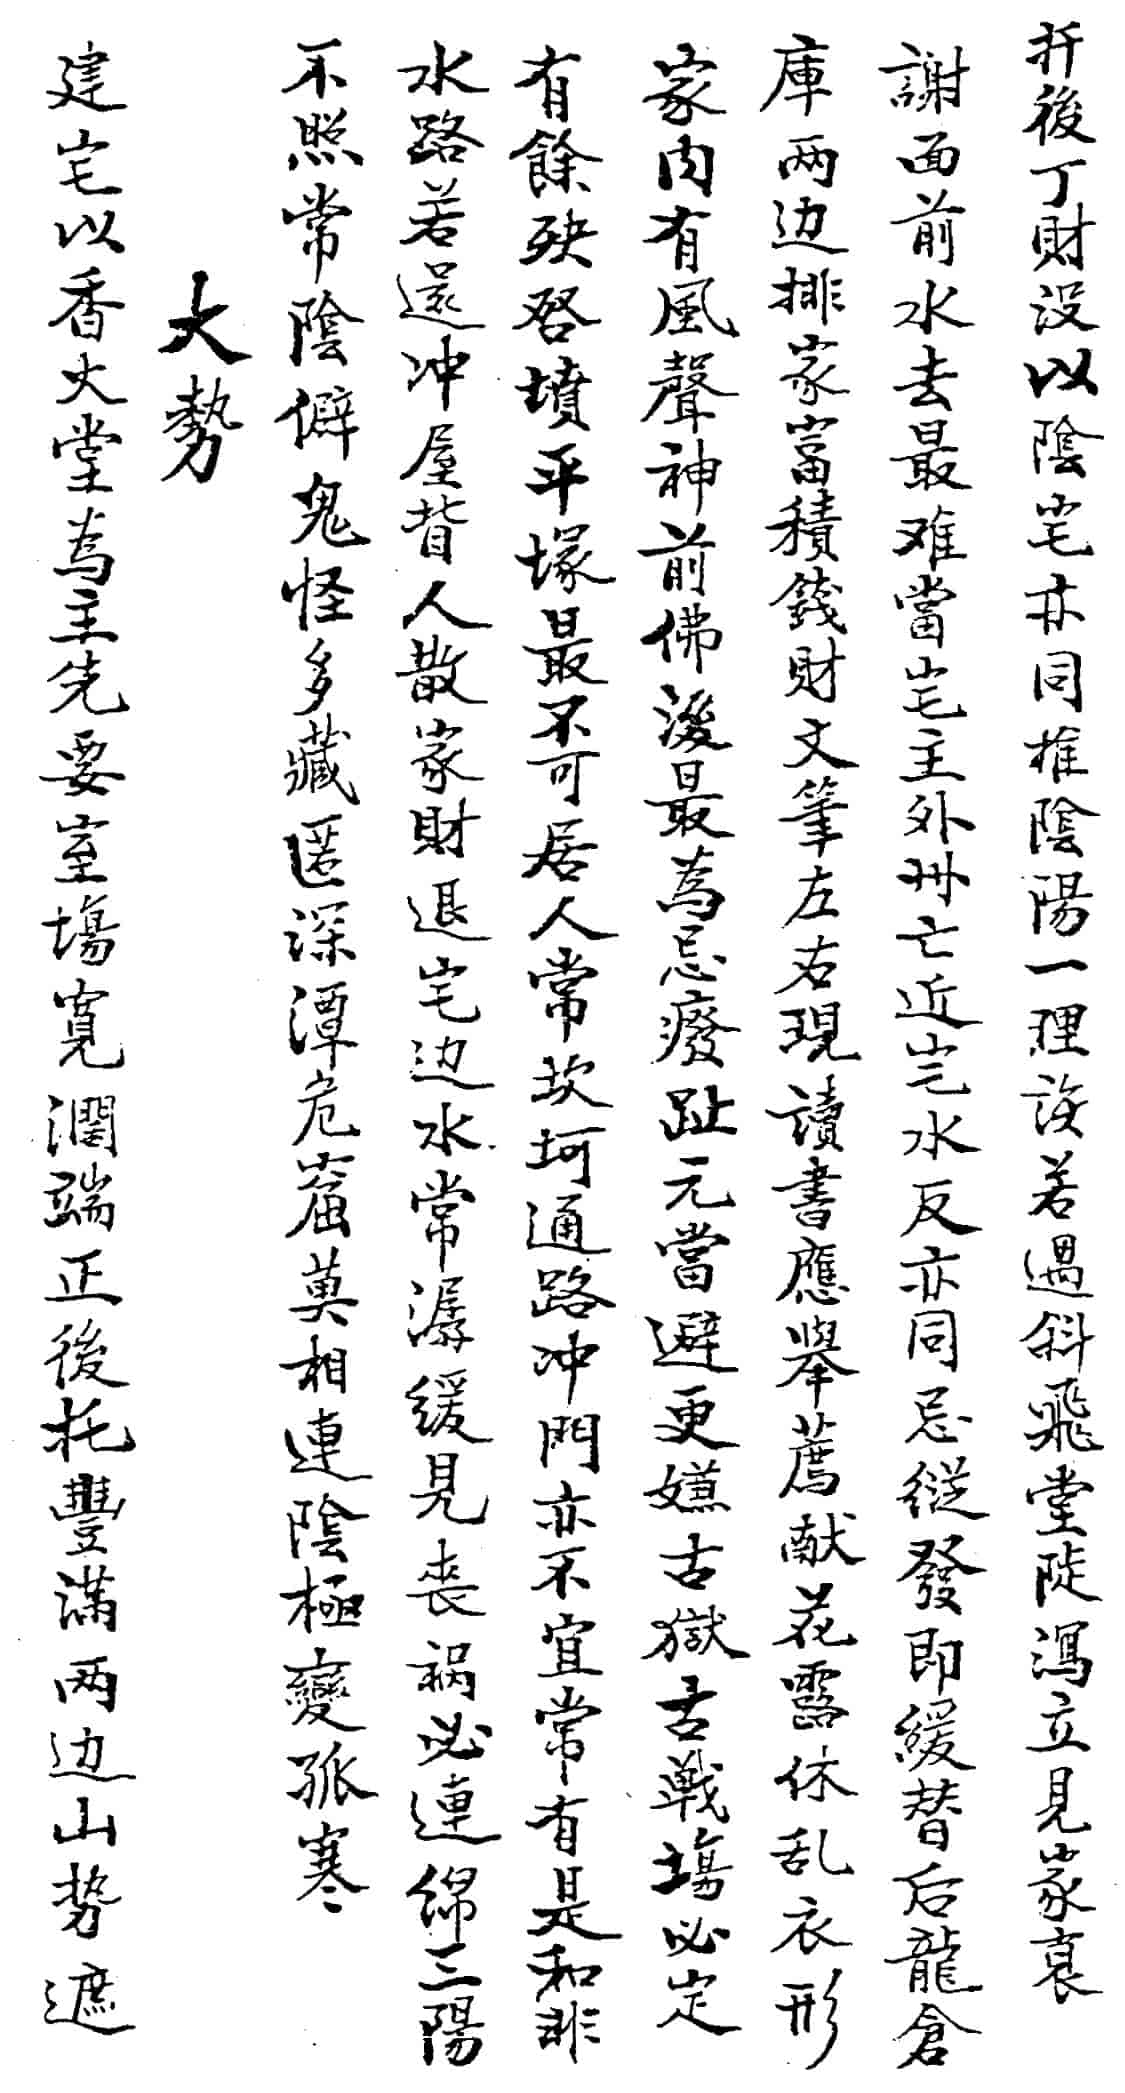 扦後丁財没以陰宅亦同推陰陽一理該若遇斜飛堂陡瀉立見家衰
謝面前水去最难當宅主外卅亡近宅水反亦同忌縱發即緩替后龍倉
庫两边排家富積錢財文筆左右現讀書應舉薦献花露体乱衣形
家内有風聲神前佛後最為忌癈趾元當避更嫌古獄古戰場必定
有餘殃啓墳平塚最不可居人常坎坷通路冲門亦不宜常有是和非
水路若還冲屋背人散家財退宅边水常潺緩見喪禍必連綿三陽
不照常陰僻鬼怪多藏匿深潭危窟莫相連陰極變孤寒
大勢
建宅以香火堂為主先要室場寬潤端正後托豐滿两边山势遮